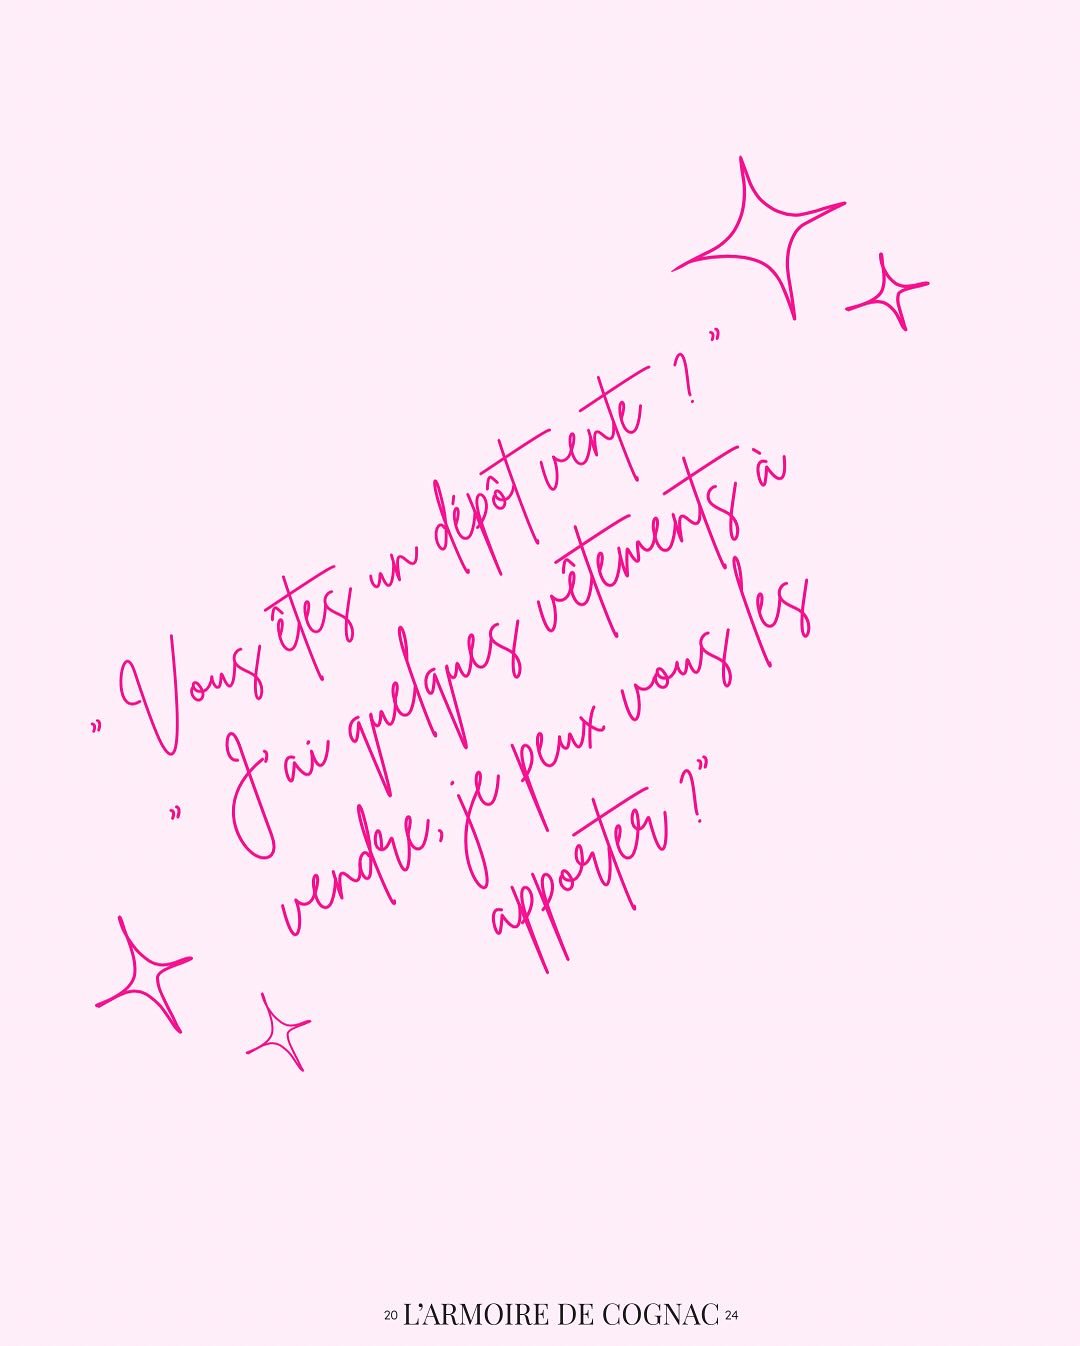 " Vous êtes un dépôt vente ? "
" J'ai quelques vêtements à
vendre, je peux vous les
apporter ? "
20 L'ARMOIRE DE COGNAC 24